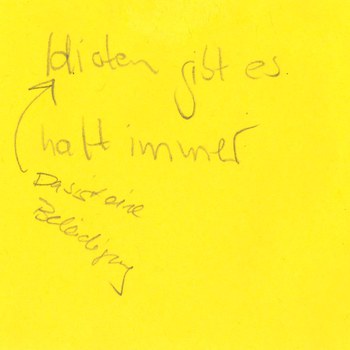 Idioten gibt es
halt immer
Das ist eine
Beleidigung